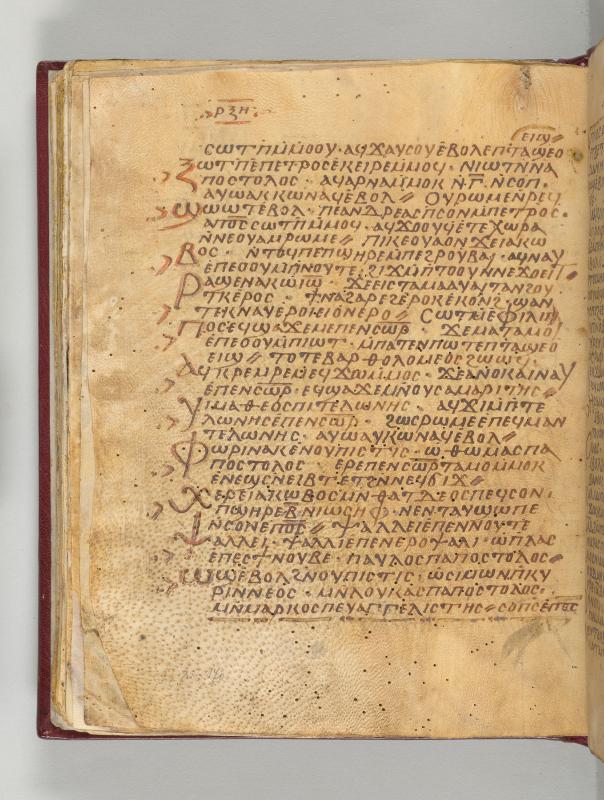 ⲣⲝⲏ
ⲉⲓⲱ
ⲥⲱⲧⲡⲙⲙⲟⲟⲩ · ⲁϥϫⲁⲩⲥⲟⲩⲉⲃⲟⲗⲉⲡⲧⲁϣⲉⲟ
ⲝⲱⲧⲡⲉⲡⲉⲧⲣⲟⲥⲉⲕⲉⲓⲣⲉⲙⲙⲟϥ · ⲛⲓⲱⲧⲛⲛⲁ
ⲡⲟⲥⲧⲟⲗⲟⲥ · ⲁϥⲁⲣⲛⲁⲙⲙⲟⲕ ⲛ̅ⲅ̅ ⲛⲥⲟⲡ ·
ⲁⲩⲱⲁⲕⲕⲱⲛⲁϥⲉⲃⲟⲗ // ⲟⲩⲣⲱⲙⲉⲛⲣⲉϥ
ⲱⲱⲧⲉⲃⲟⲗ · ⲡⲉⲁⲛⲇⲣⲉⲁⲥⲡⲥⲟⲛⲙⲡⲉⲧⲣⲟⲥ ·
ⲁⲡⲟ̅ⲥ̅ⲥⲱⲧⲡⲙⲙⲟϥ · ⲁϥϫⲟⲟⲩϥⲉⲧⲉⲭⲱⲣⲁ
ⲛⲛⲉⲟⲩⲁⲙⲣⲱⲙⲉ // ⲡⲓⲕⲉⲟⲩⲁⲟⲛϫⲉⲓⲁⲕⲱ
ⲃⲟⲥ · ⲛⲧⲟϥⲡⲉⲡϣⲏⲣⲉⲙⲡⲉⲅⲣⲟⲩⲃⲁⲓ · ⲁϥⲛⲁⲩ
ⲉⲡⲉⲟⲟⲩⲙⲡⲛⲟⲩⲧⲉ · ϩⲓϫⲙⲡⲧⲟⲟⲩⲛⲛⲉϫⲟⲉⲓⲧ
ⲣⲁϣⲉⲛⲁⲕⲱⲓ̅ⲱ̅ · ϫⲉⲉⲓⲥⲧⲁⲙⲁⲁⲩⲁⲓⲧⲁⲛϩⲟⲩ
ⲧⲕⲉⲣⲟⲥ · ϯⲛⲁϩⲁⲣⲉϩⲉⲣⲟⲕⲉⲕⲟⲛϩ · ϣⲁⲛ
ⲧⲉⲕⲛⲁⲩⲉⲣⲟⲓⲉⲓⲟⲛⲉⲣⲟ // ⲥⲱⲧⲙⲉⲫⲓⲗⲓⲡ
ⲡⲟⲥⲉϥϣⲁϫⲉⲙⲡⲉⲛⲥⲱ̅ⲣ̅ · ϫⲉⲙⲁⲧⲁⲙⲟⲓ
ⲉⲡⲉⲟⲟⲩⲙⲡⲓⲱⲧ · ⲙⲡⲁⲧⲉⲛⲡⲱⲧⲉⲡⲧⲁϣⲉⲟ
ⲉⲓϣ // ⲧⲟⲧⲉⲃⲁⲣⲑⲟⲗⲟⲙⲉⲟⲥϩⲱⲱϥ ·
ⲁϥⲕⲣⲉⲙⲣⲉⲙⲉϥϫⲱⲙⲙⲟⲥ · ϫⲉⲁⲛⲟⲕⲁⲓⲛⲁⲩ
ⲉⲡⲉⲛⲥⲱ̅ⲣ̅ · ⲉϥϣⲁϫⲉⲙⲛⲟⲩⲥⲁⲙⲁⲣⲓⲧⲏⲥ //
ⲩⲓⲙⲁⲑⲉⲟⲥⲡⲓⲧⲉⲗⲱⲛⲏⲥ · ⲁϥϫⲓⲙⲡⲧⲉ
ⲗⲱⲛⲏⲥⲉⲡⲉⲛⲥⲱ̅ⲣ̅ · ϩⲱⲥⲣⲱⲙⲉⲉⲡⲉϥⲙⲁⲛ
ⲧⲉⲗⲱⲛⲏⲥ · ⲁⲩⲱⲁⲩⲕⲱⲛⲁϥⲉⲃⲟⲗ //
ⲫⲱⲣⲓⲛⲁⲕⲉⲛⲟⲩⲡⲓⲥⲧⲓⲥ · ⲱ ⲑⲱⲙⲁⲥⲡⲁ
ⲡⲟⲥⲧⲟⲗⲟⲥ · ⲉⲣⲉⲡⲉⲛⲥⲱ̅ⲣ̅ⲧⲁⲙⲟⲙⲙⲟⲕ
ⲉⲛⲉϣⲥⲛⲉⲓⲃⲧ ⲉⲧϩⲛⲛⲉϥϭⲓϫ //
ⲭⲉⲣⲉⲓⲁⲕⲱⲃⲟⲥⲙⲛⲑⲁⲧⲇⲉⲟⲥⲡⲉϥⲥⲟⲛ ·
ⲡϣⲏⲣⲉⲃ̅ⲛⲓⲱⲥⲏⲫ · ⲛⲉⲛⲧⲁⲩϣⲱⲡⲉ
ⲛⲥⲟⲛⲉⲡⲟ̅ⲥ̅ // ⲯⲁⲗⲗⲉⲓⲉⲡⲉⲛⲛⲟⲩⲧⲉ
ⲯⲁⲗⲗⲉⲓ · ⲯⲁⲗⲗⲓⲉⲡⲉⲛⲉⲣⲟⲯⲁⲗⲓ · ⲱⲡⲗⲁⲥ
ⲉⲡⲉⲥϯⲛⲟⲩⲃⲉ · ⲡⲁⲩⲗⲟⲥⲡⲁⲡⲟⲥⲧⲟⲗⲟⲥ //
ⲱⲱⲉⲃⲟⲗϩⲛⲟⲩⲡⲓⲥⲧⲓⲥ · ⲱⲥⲓⲙⲱⲛⲡⲕⲩ
ⲣⲓⲛⲛⲉⲟⲥ · ⲙⲛⲗⲟⲩⲕⲁⲥⲡⲁⲡⲟⲥⲧⲟⲗⲟⲥ ·
ⲙⲛⲙⲁⲣⲕⲟⲥⲡⲉⲩⲁⲅⲅⲉⲗⲓⲥⲧⲏⲥ // ⲥⲟⲡⲥⲉⲡⲟ̅ⲥ̅